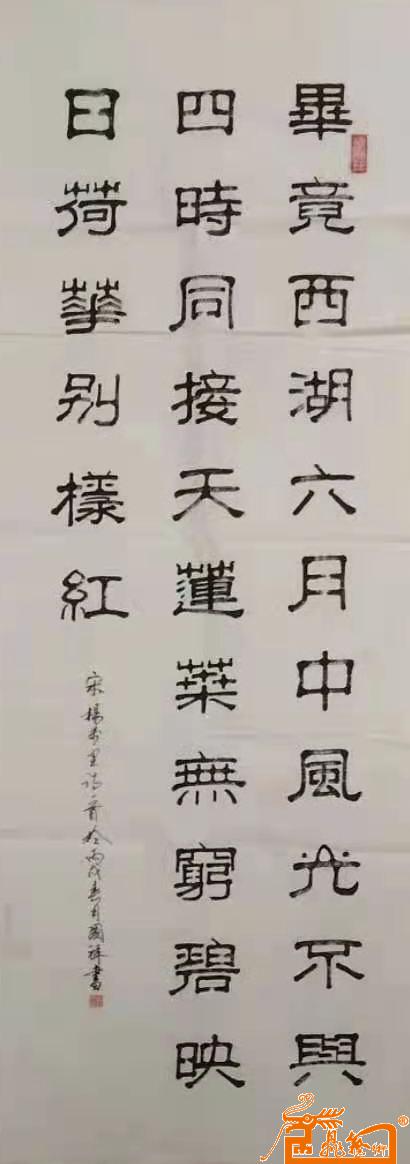 畢竟西湖六月中風光不與
四時同接天蓮葉無窮碧映
日荷華别樣紅
宋楊万里詩一首於丙戌春月國祥書